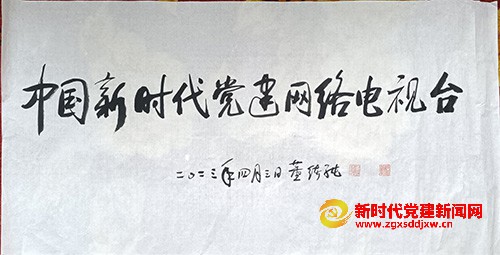 中国新时代党建网络电视台
二〇二三年四月三日
新时代党建新闻网
www.zgxsddjxw.cn